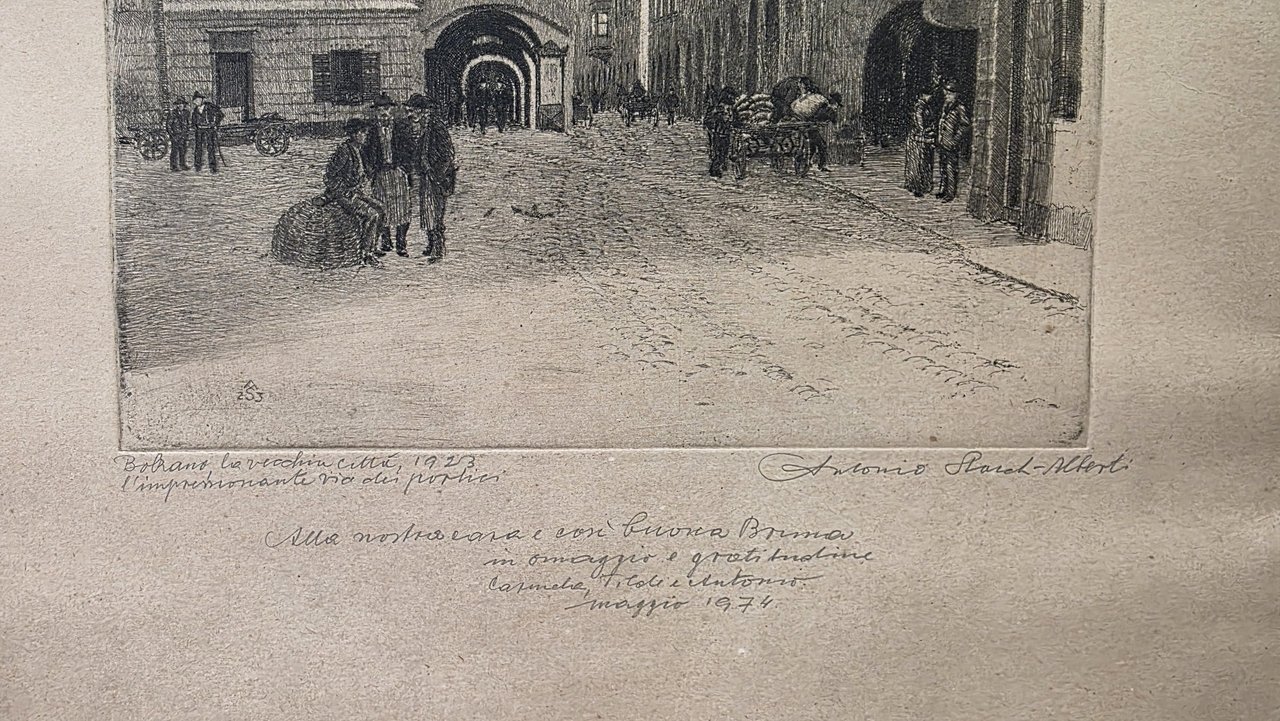 Bolzano, la vecchia città, 1923
l'impressionante via dei portici
Antonio Stasch-Alberti
Alla nostra cara e così buona Bruna
in omaggio e gratitudine
Carmela, Tilde e Antonio
maggio 1974.